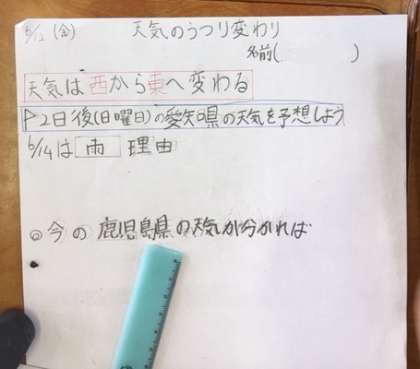 6/12 (金) 天気のうつり変わり
名前( )
天気は西から東へ変わる
2日後(日曜日)の愛知県の天気を予想しよう
6/14は 雨 理由
◎今の鹿児島県の天気が分かれば